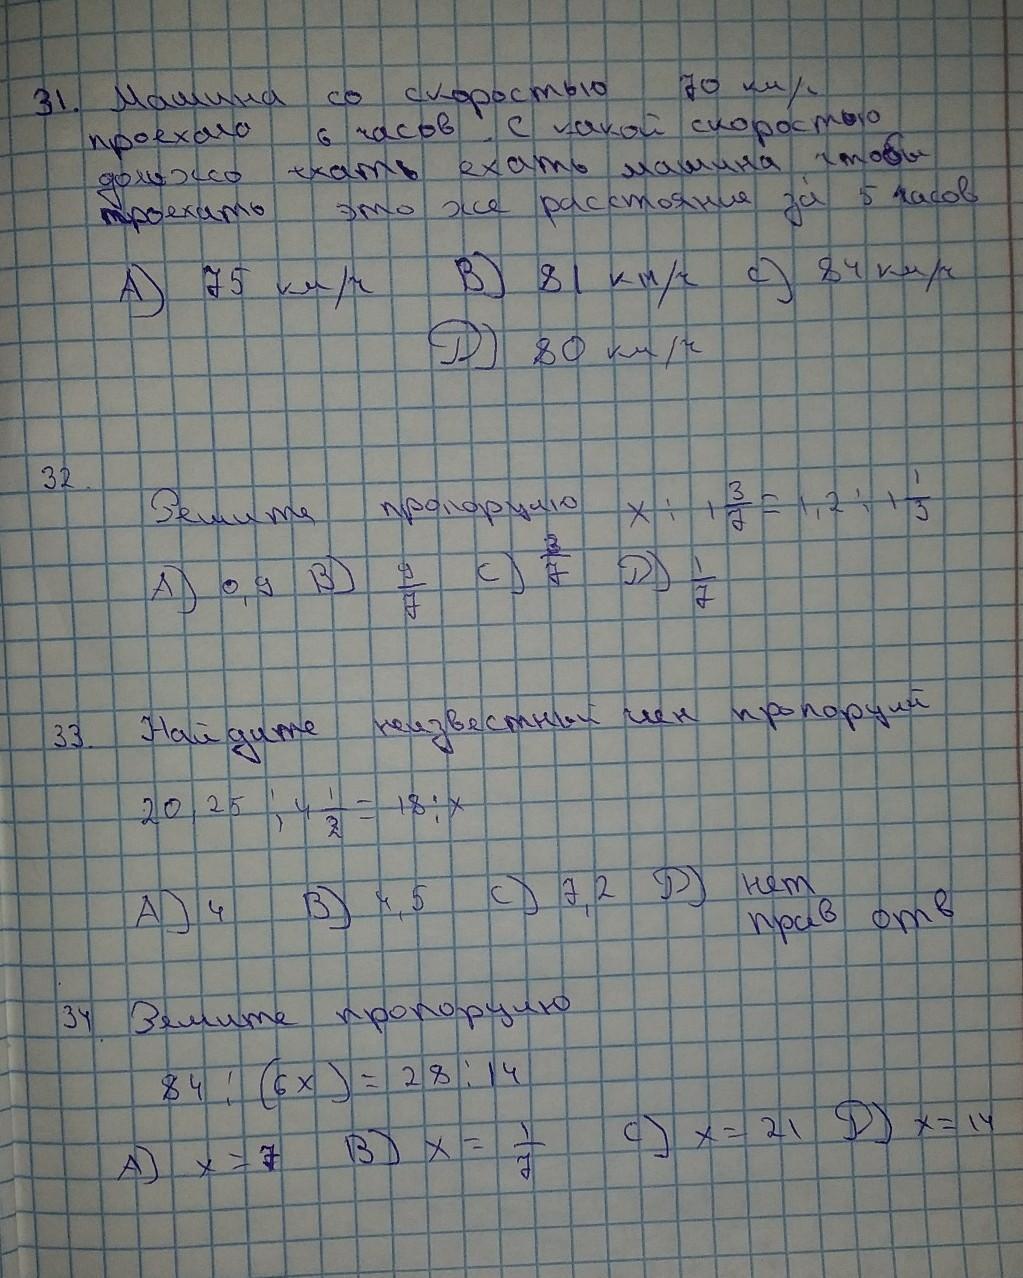 31. Машина со скоростью 70 км/ч
проехало 6 часов. С какой скоростью
должно ехать ехать машина чтобы
проехать это же расстояние за 5 часов
A) 75 км/ч B) 81 км/ч C) 84 км/ч
D) 80 км/ч
32.
Решите пропорцию x : 1 3/7 = 1,2 : 1 1/3
A) 0,9 B) 9/7 C) 3/7 D) 1/7
33. Найдите неизвестный член пропорций
20,25 : 4 1/2 = 18 : x
A) 4 B) 4,5 C) 7,2 D) нет
прав отв
34 Решите пропорцию
84 : (6x) = 28 : 14
A) x = 7 B) x = 1/7 C) x = 21 D) x = 14